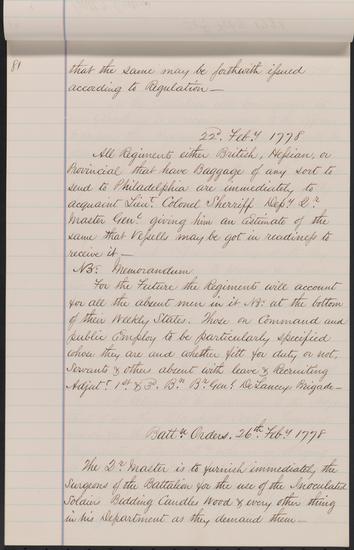 81
that the same may be forthwith issued
according to Regulation —
22d. Feby 1778
All Regiments either British, Hessian, or
Provincial that have Baggage of any sort to
send to Philadelphia are immediately to
acquaint Lieut. Colonel Sherriff Depy Qr.
Master Genl. giving him an Estimate of the
same that Vessells may be got in readiness to
receive it —
NB: Memorandum
For the Future the Regiments will account
for all the absent men in it NB: at the bottom
of their Weekly States. Those on Command and
public Employ to be particularly specified
where they are and whether fitt for duty or not.
Servants & others absent with leave & Recruiting
Adjut. 1st & 3d. Bn. Br. Genl. DeLanceys Brigade —
Battn. Orders. 26th. Feby 1778
The Qr. Master is to furnish immediately the
Surgeons of the Battalion for the use of the Inoculated
Soldiers Bedding Candles Wood & every other thing
in his Department as they demand them —